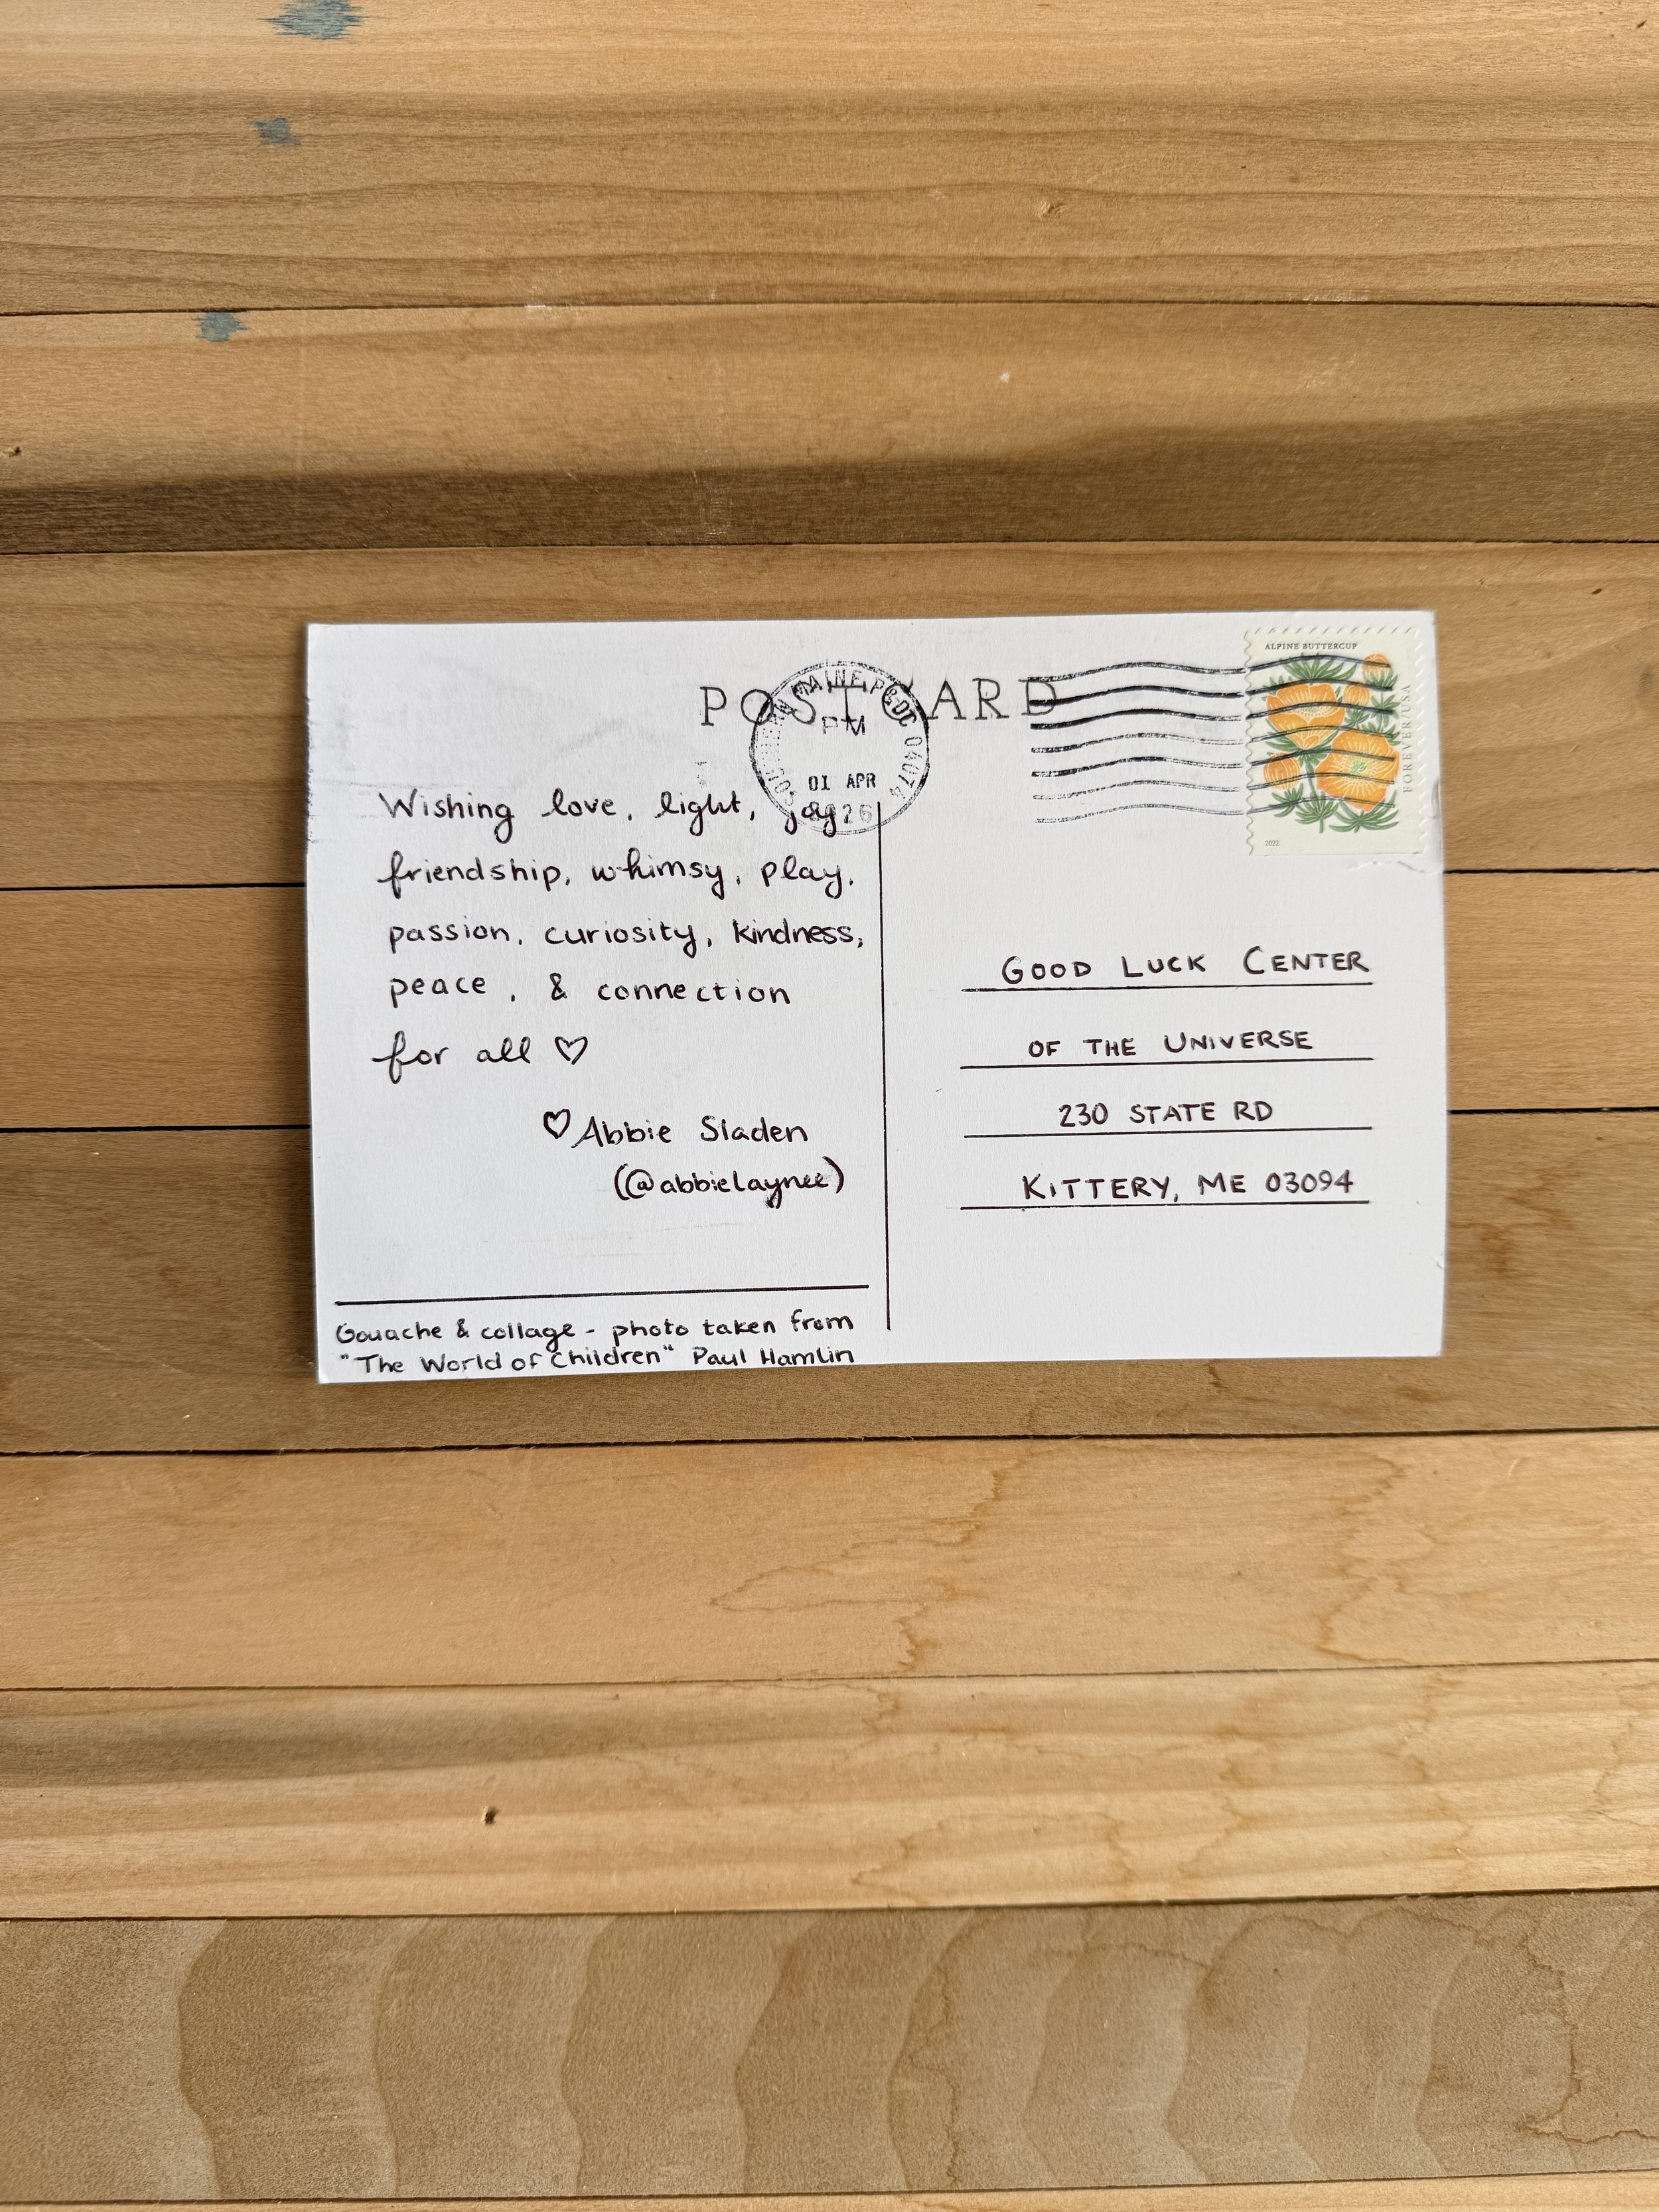 POSTCARD
SOUTHERN MAINE P&DC 04074
PM
01 APR
2026
ALPINE BUTTERCUP
FOREVER/USA
2022
Wishing love, light, joy
friendship, whimsy, play,
passion, curiosity, kindness,
peace, & connection
for all ♡
♡ Abbie Sladen
(@abbielaynee)
Gouache & collage - photo taken from
"The World of Children" Paul Hamlin
GOOD LUCK CENTER
OF THE UNIVERSE
230 STATE RD
KITTERY, ME 03094